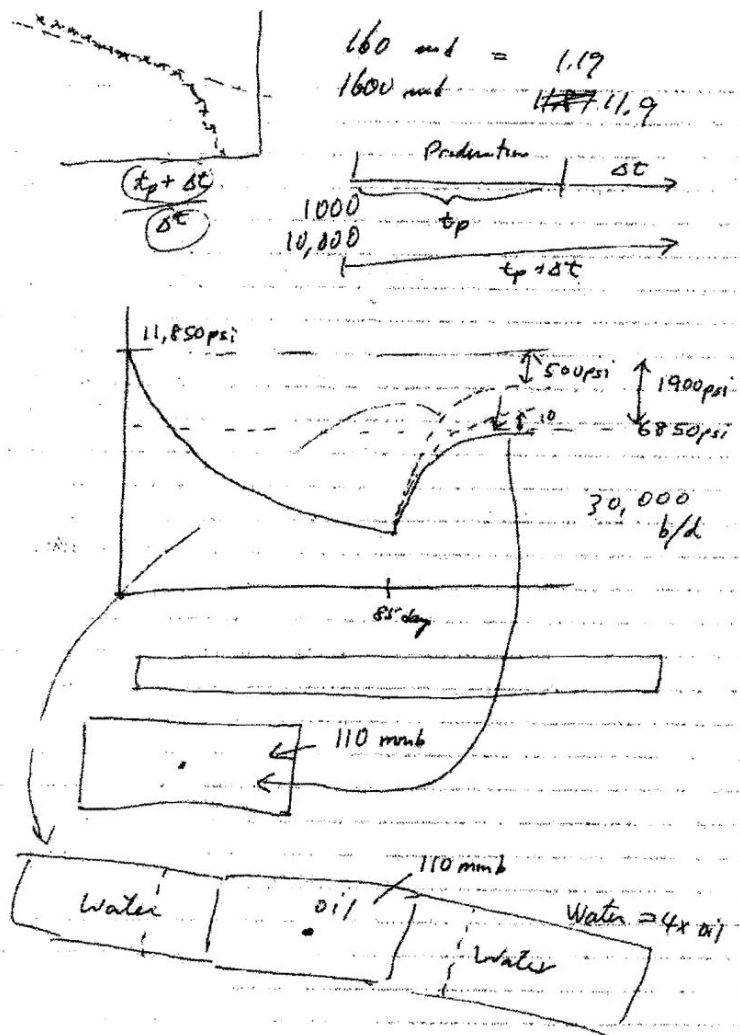 160 md = 1.19
1600 md 11.9
Production Δt
tp
tp + Δt
Δt
1000
10,000
tp + Δt
11,850 psi
500 psi
1900 psi
10
6850 psi
30,000
b/d
85 day
110 mmb
110 mmb
Water
Oil
Water
Water = 4x oil